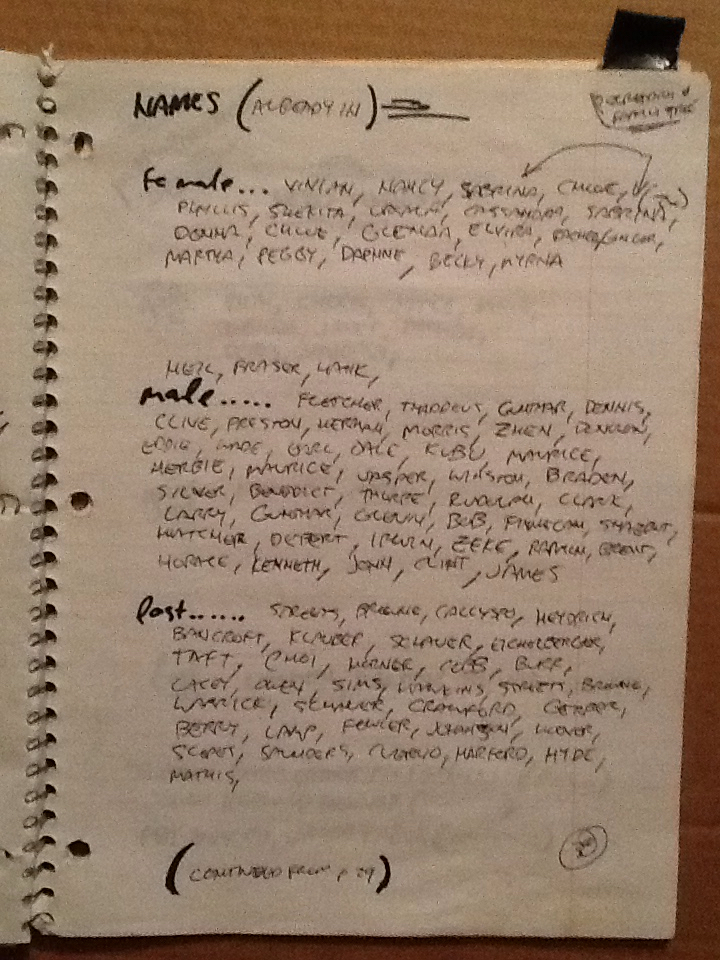 NAMES (ALREADY IN)
FAMILY TREE
female... VIVIAN, NANCY, SABRINA, CHLOE,
PHYLLIS, SHEKITA, CASSANDRA, SABRINA,
DONNA, CHLOE, GLENDA, ELVIRA,
MARTHA, PEGGY, DAPHNE, BECKY, MYRNA
NEIL, FRASER, HANK,
male..... FLETCHER, THADDEUS, GUNTHAR, DENNIS,
CLIVE, PRESTON, HERMAN, MORRIS, ZHEN, DUNCAN,
EDDIE, WADE, CARL, DALE, KUBO, MAURICE,
HERBIE, MAURICE, JASPER, WINSTON, BRADEN,
SILVER, BENEDICT, THORPE, RUDOLPH, CLARK,
LARRY, GUNTHAR, GLENN, BOB, FINNEGAN,
HATCHER, DETERT, IRWIN, ZEKE, RAMON, BRENT,
HORACE, KENNETH, JOHN, CLINT, JAMES
last...... STREETS, BROWNE, CALLYSTO, HEYDRICH,
BANCROFT, KLAUBER, SCHAUER, EICHELBERGER,
TAFT, CHOI, HORNER, COBB, BURR,
LACEY, OWEN, SIMS, HAWKINS, STREETS, BROWNE,
WARRICK, SKINNER, CRAWFORD, GERBER,
BERRY, LAMP, FOWLER, JOHANSON, HOOVER,
SAUNDERS, HARFORD, HYDE,
MATHIS,
(CONTINUED FROM p 29)